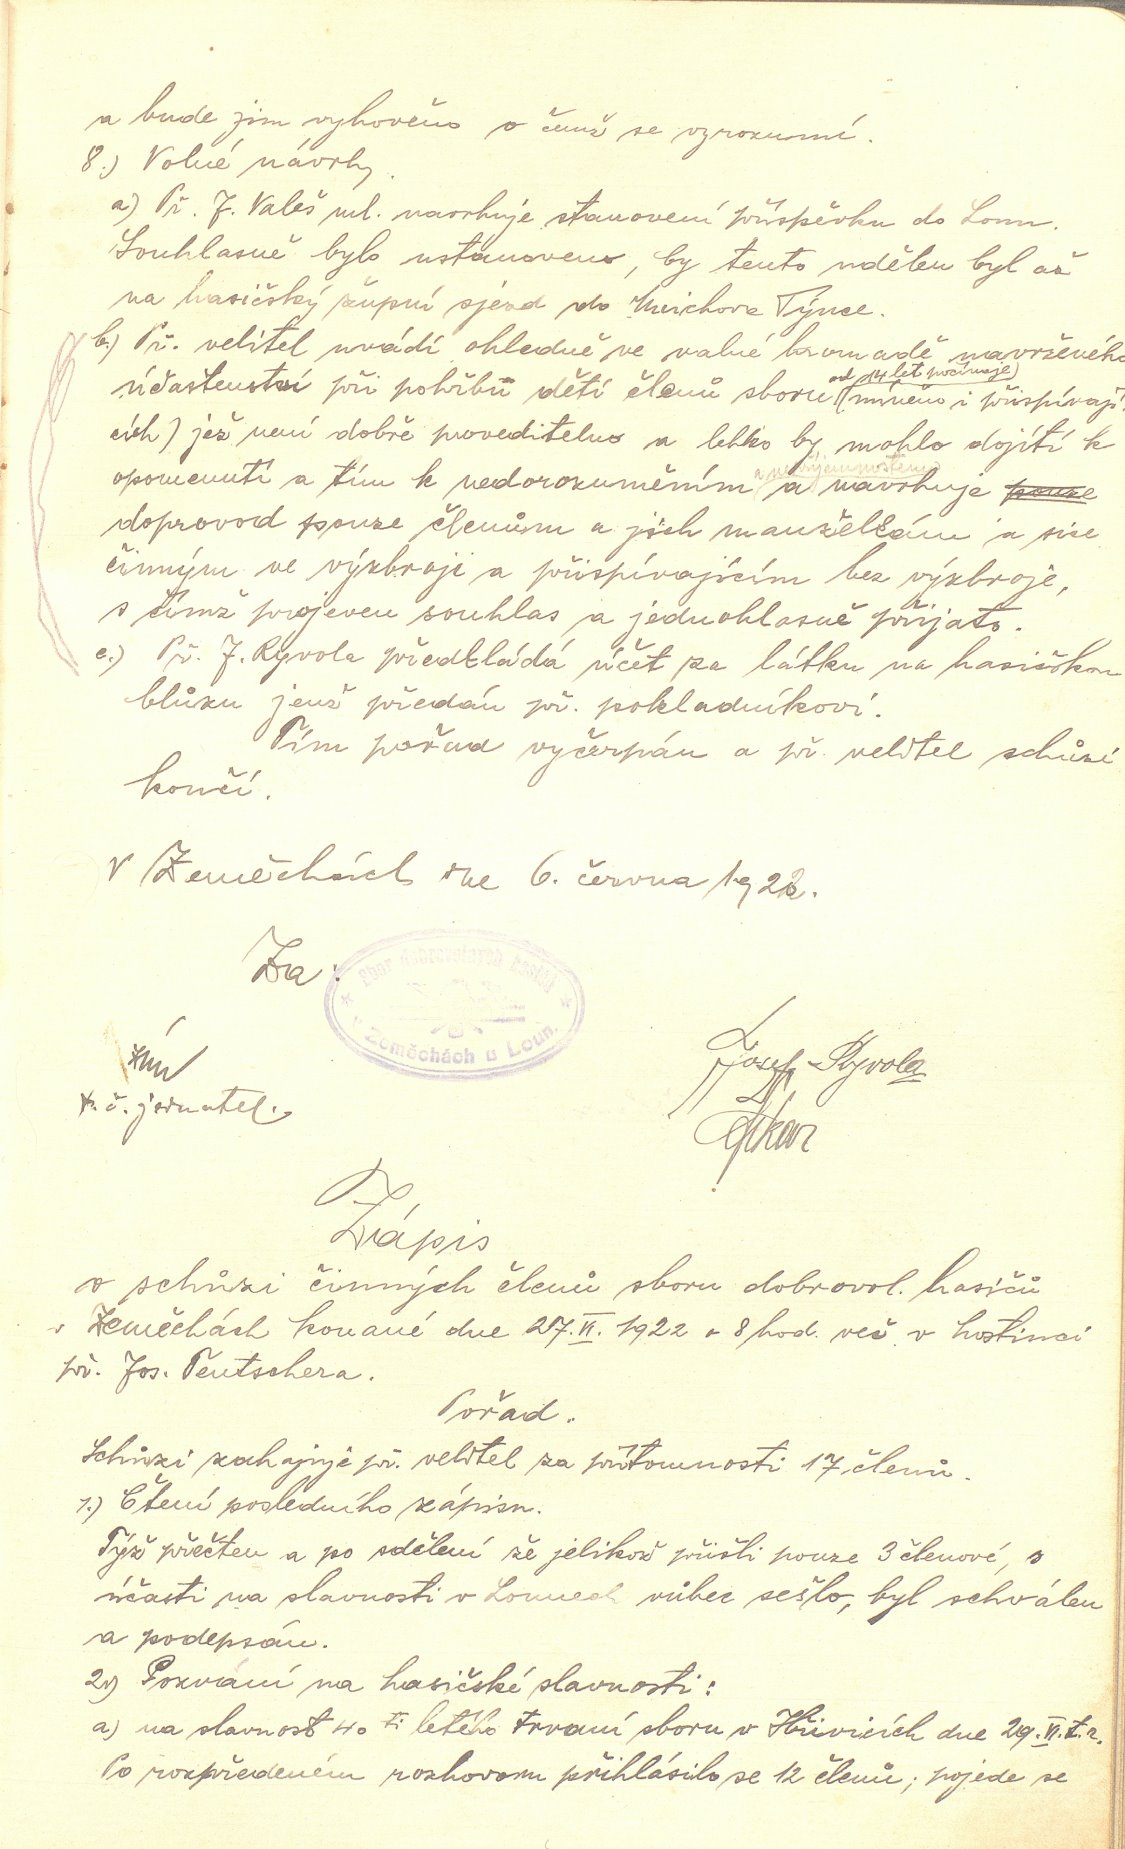 a bude jim vyhověno o čemž se vyrozumí.
8.) Volné návrhy.
a) Př. J. Valeš ml. navrhuje stanovení příspěvku do Loun.
Souhlasně bylo ustanoveno, by tento udělen byl až
na hasičský župní sjezd do Týnce.
b.) Př. velitel uvádí ohledně ve valné hromadě navrženého
od 14 let počínaje
účastenství při pohřbu dětí členů sboru (míněno i přispívají-
cích) jež není dobře proveditelno a lehko by mohlo dojíti k
a nepříjemnostem
opomenutí a tím k nedorozuměním a navrhuje pouze
doprovod pouze členům a jich manželkám a sice
činným ve výzbroji a přispívajícím bez výzbroje,
s čímž projeven souhlas a jednohlasně přijato.
c.) Př. J. Ryvola předkládá účet za látku na hasičskou
blůzu jenž předán př. pokladníkovi.
Tím pořad vyčerpán a př. velitel schůzi
končí.
V Zeměchách dne 6. června 1922.
Za:
Sbor dobrovolných hasičů
v Zeměchách u Loun.
t. č. jednatel.
Josef Ryvola
Zápis
o schůzi činných členů sboru dobrovol. hasičů
v Zeměchách konané dne 27.VI. 1922 o 8 hod. več. v hostinci
př. Jos. Pentschera.
Pořad.
Schůzi zahajuje př. velitel za přítomnosti 17 členů.
1.) Čtení posledního zápisu.
Týž přečten a po sdělení že jelikož přišli pouze 3 členové, s
účasti na slavnosti v Lounech vůbec sešlo, byl schválen
a podepsán.
2.) Pozvání na hasičské slavnosti:
a) na slavnost 40 ti letého trvaní sboru v Hřivicích dne 29.VI. t.r.
Po rozpředeném rozhovoru přihlásilo se 12 členů; pojede se